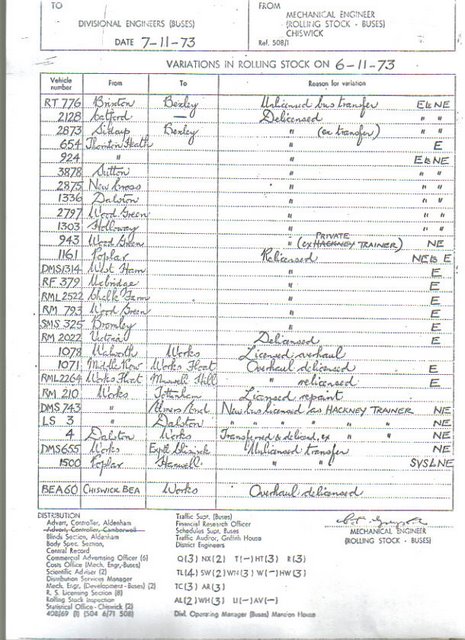 TO
DIVISIONAL ENGINEERS (BUSES)
DATE 7-11-73
FROM
MECHANICAL ENGINEER
(ROLLING STOCK - BUSES)
CHISWICK
Ref. 508/1
VARIATIONS IN ROLLING STOCK ON 6-11-73
Vehicle number From To Reason for variation
RT 776 Brixton Bexley Unlicensed bus transfer E & NE
2128 Catford — Delicensed " "
2873 Sidcup Bexley " (ex transfer) " "
654 Thornton Heath " E
924 " " E & NE
3878 Sutton " " "
2875 New Cross " " "
1336 Dalston " " "
2797 Wood Green " " "
1303 Holloway " " "
943 Wood Green " PRIVATE (ex HACKNEY TRAINER) NE
1161 Poplar Relicensed NE & E
DMS1314 West Ham " E
RF 379 Uxbridge " E
RML 2522 Chalk Farm " E
RM 793 Wood Green " E
SMS 325 Bromley " E
RM 2022 Victoria Delicensed E
1078 Walworth Works Licensed overhaul
1071 Middle Row Works Float Overhaul delicensed E
RML2264 Works Float Muswell Hill " relicensed E
RM 210 Works Tottenham Licensed repaint
DMS 743 " Alvers End New bus licensed as HACKNEY TRAINER NE
LS 3 " Dalston " " " " " NE
4 Dalston Works Transferred & deliced, ex " " NE
DMS655 Works Unlicensed transfer NE
1500 Poplar Hanwell " " SVSLNE
BEA60 CHISWICK BEA Works Overhaul delicensed
DISTRIBUTION
Advert. Controller, Aldenham
Advert. Controller, Camberwell
Blinds Section, Aldenham
Body Spec. Section
Central Record
Commercial Advertising Officer (6)
Costs Office (Mech. Engr.-Buses)
Scientific Adviser (2)
Distribution Services Manager
Mech. Engr. (Development-Buses) (2)
R. S. Licensing Section (8)
Rolling Stock Inspection
Statistical Office - Chiswick (2)
408/69 (1) (504 6/71 508)
Traffic Supt. (Buses)
Financial Research Officer
Schedules Supt. Buses
Traffic Auditor, Griffith House
District Engineers
Q(3) NX(2) T(-) HT(3) R(3)
TL(4) SW(2) WN(3) W(-) HW(3)
TC(3) AR(3)
AL(2) WH(3) U(-) AV(-)
Divl. Operating Manager (Buses) Mansion House
MECHANICAL ENGINEER
(ROLLING STOCK - BUSES)